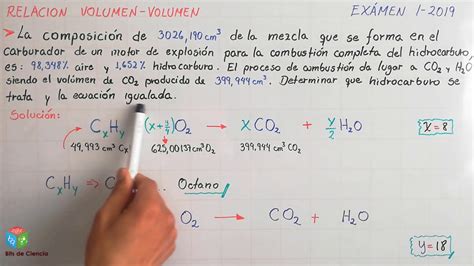 RELACION VOLUMEN-VOLUMEN EXÁMEN 1-2019
La composición de 3026,190 cm³ de la mezcla que se forma en el
carburador de un motor de explosión para la combustión completa del hidrocarburo,
es: 98,348% aire y 1,652% hidrocarburo. El proceso de combustión da lugar a CO₂ y H₂O
siendo el volúmen de CO₂ producido de 399,944 cm³. Determinar que hidrocarburo se
trata y la ecuación igualada.
Solución:
CxHy (x+y/4)O₂ → XCO₂ + y/2 H₂O X=8
49,993 cm³ Cx 625,00137 cm³ O₂ 399,944 cm³ CO₂
CxHy ⇒ Octano
O₂ → CO₂ + H₂O
y=18
Bits de Ciencia